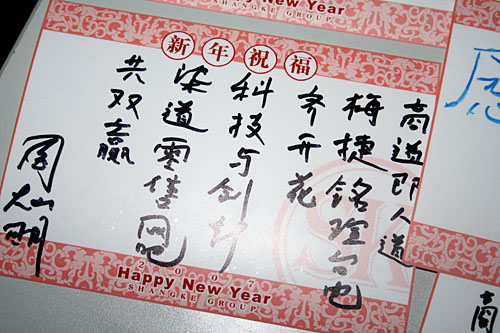 Happy New Year
SHANGKE GROUP
新年祝福
商道即人道
梅捷铭瑄台电
齐开花
科技与创新
柒道零售吧
共双赢
周
明
2007
Happy New Year
SHANGKE GROUP
商